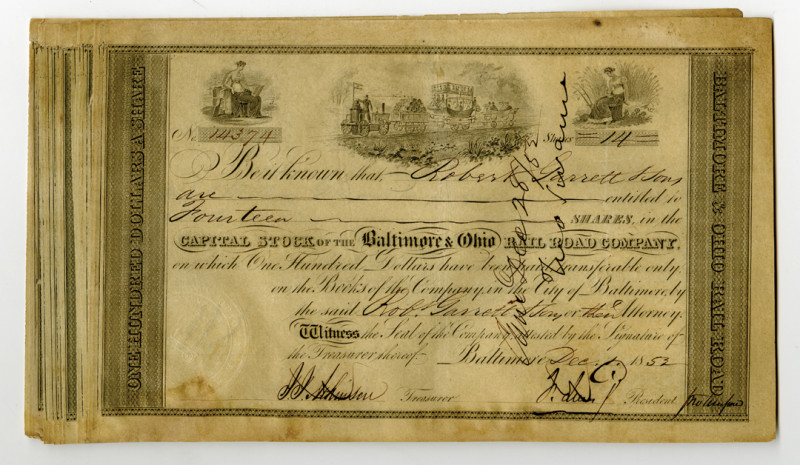 ONE HUNDRED DOLLARS A SHARE
No. 14374
Shares 14
Be it known that Robert Garrett & Sons
are entitled to
Fourteen SHARES, in the
CAPITAL STOCK OF THE Baltimore & Ohio RAIL ROAD COMPANY,
on which One Hundred Dollars have been paid transferable only
on the Books of the Company, in the City of Baltimore, by
the said Robt. Garrett & Sons or their Attorney.
Witness, the Seal of the Company, attested by the Signature of
the Treasurer thereof. Baltimore Dec. 1852
Treasurer
President
BALTIMORE & OHIO RAIL ROAD